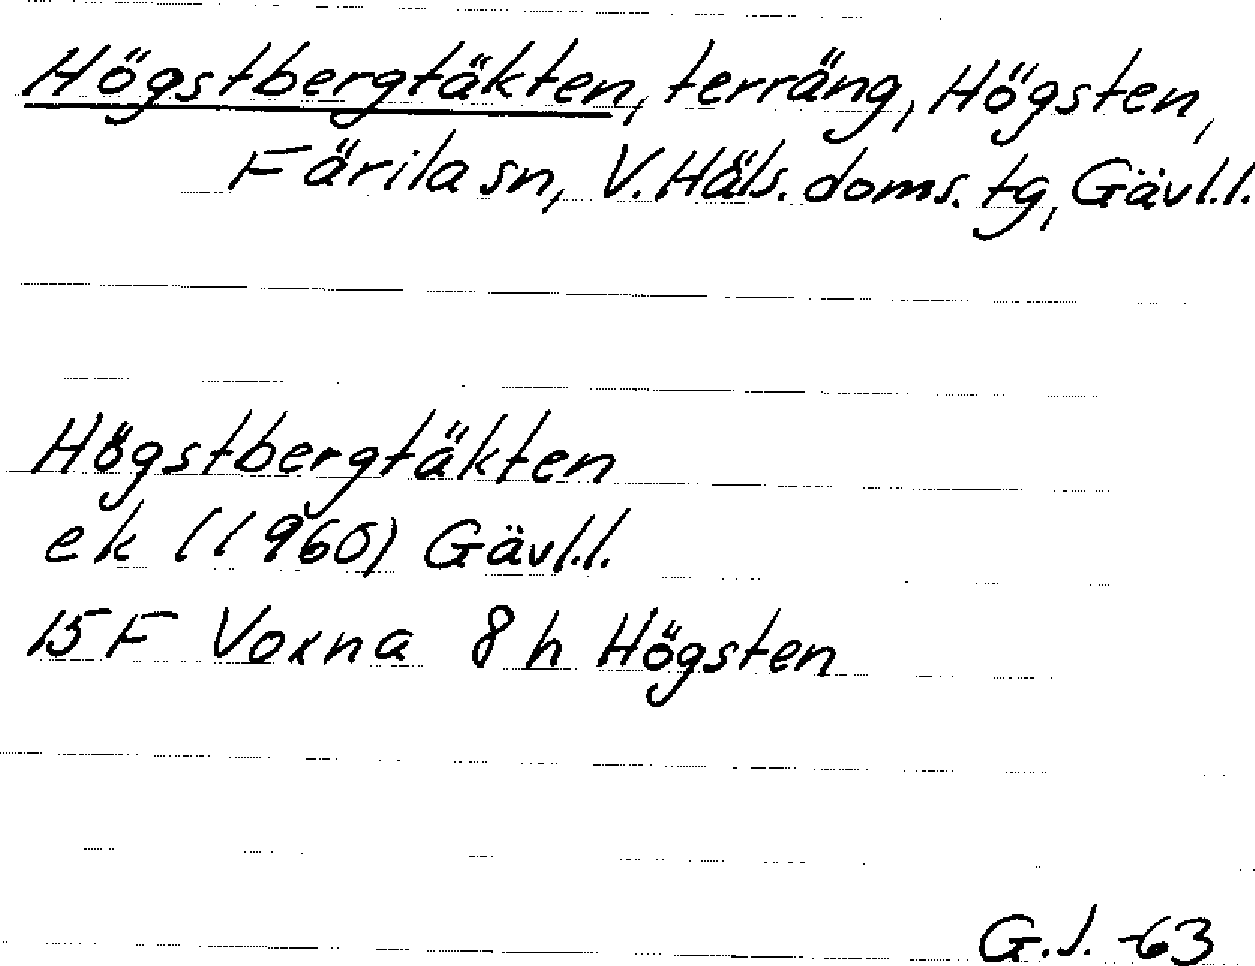 Högstbergtäkten, terräng, Högsten,
Färila sn, V. Häls. doms. tg, Gävl.l.
Högstbergtäkten
ek (1960) Gävl.l.
15F Voxna 8h Högsten
G.J. -63